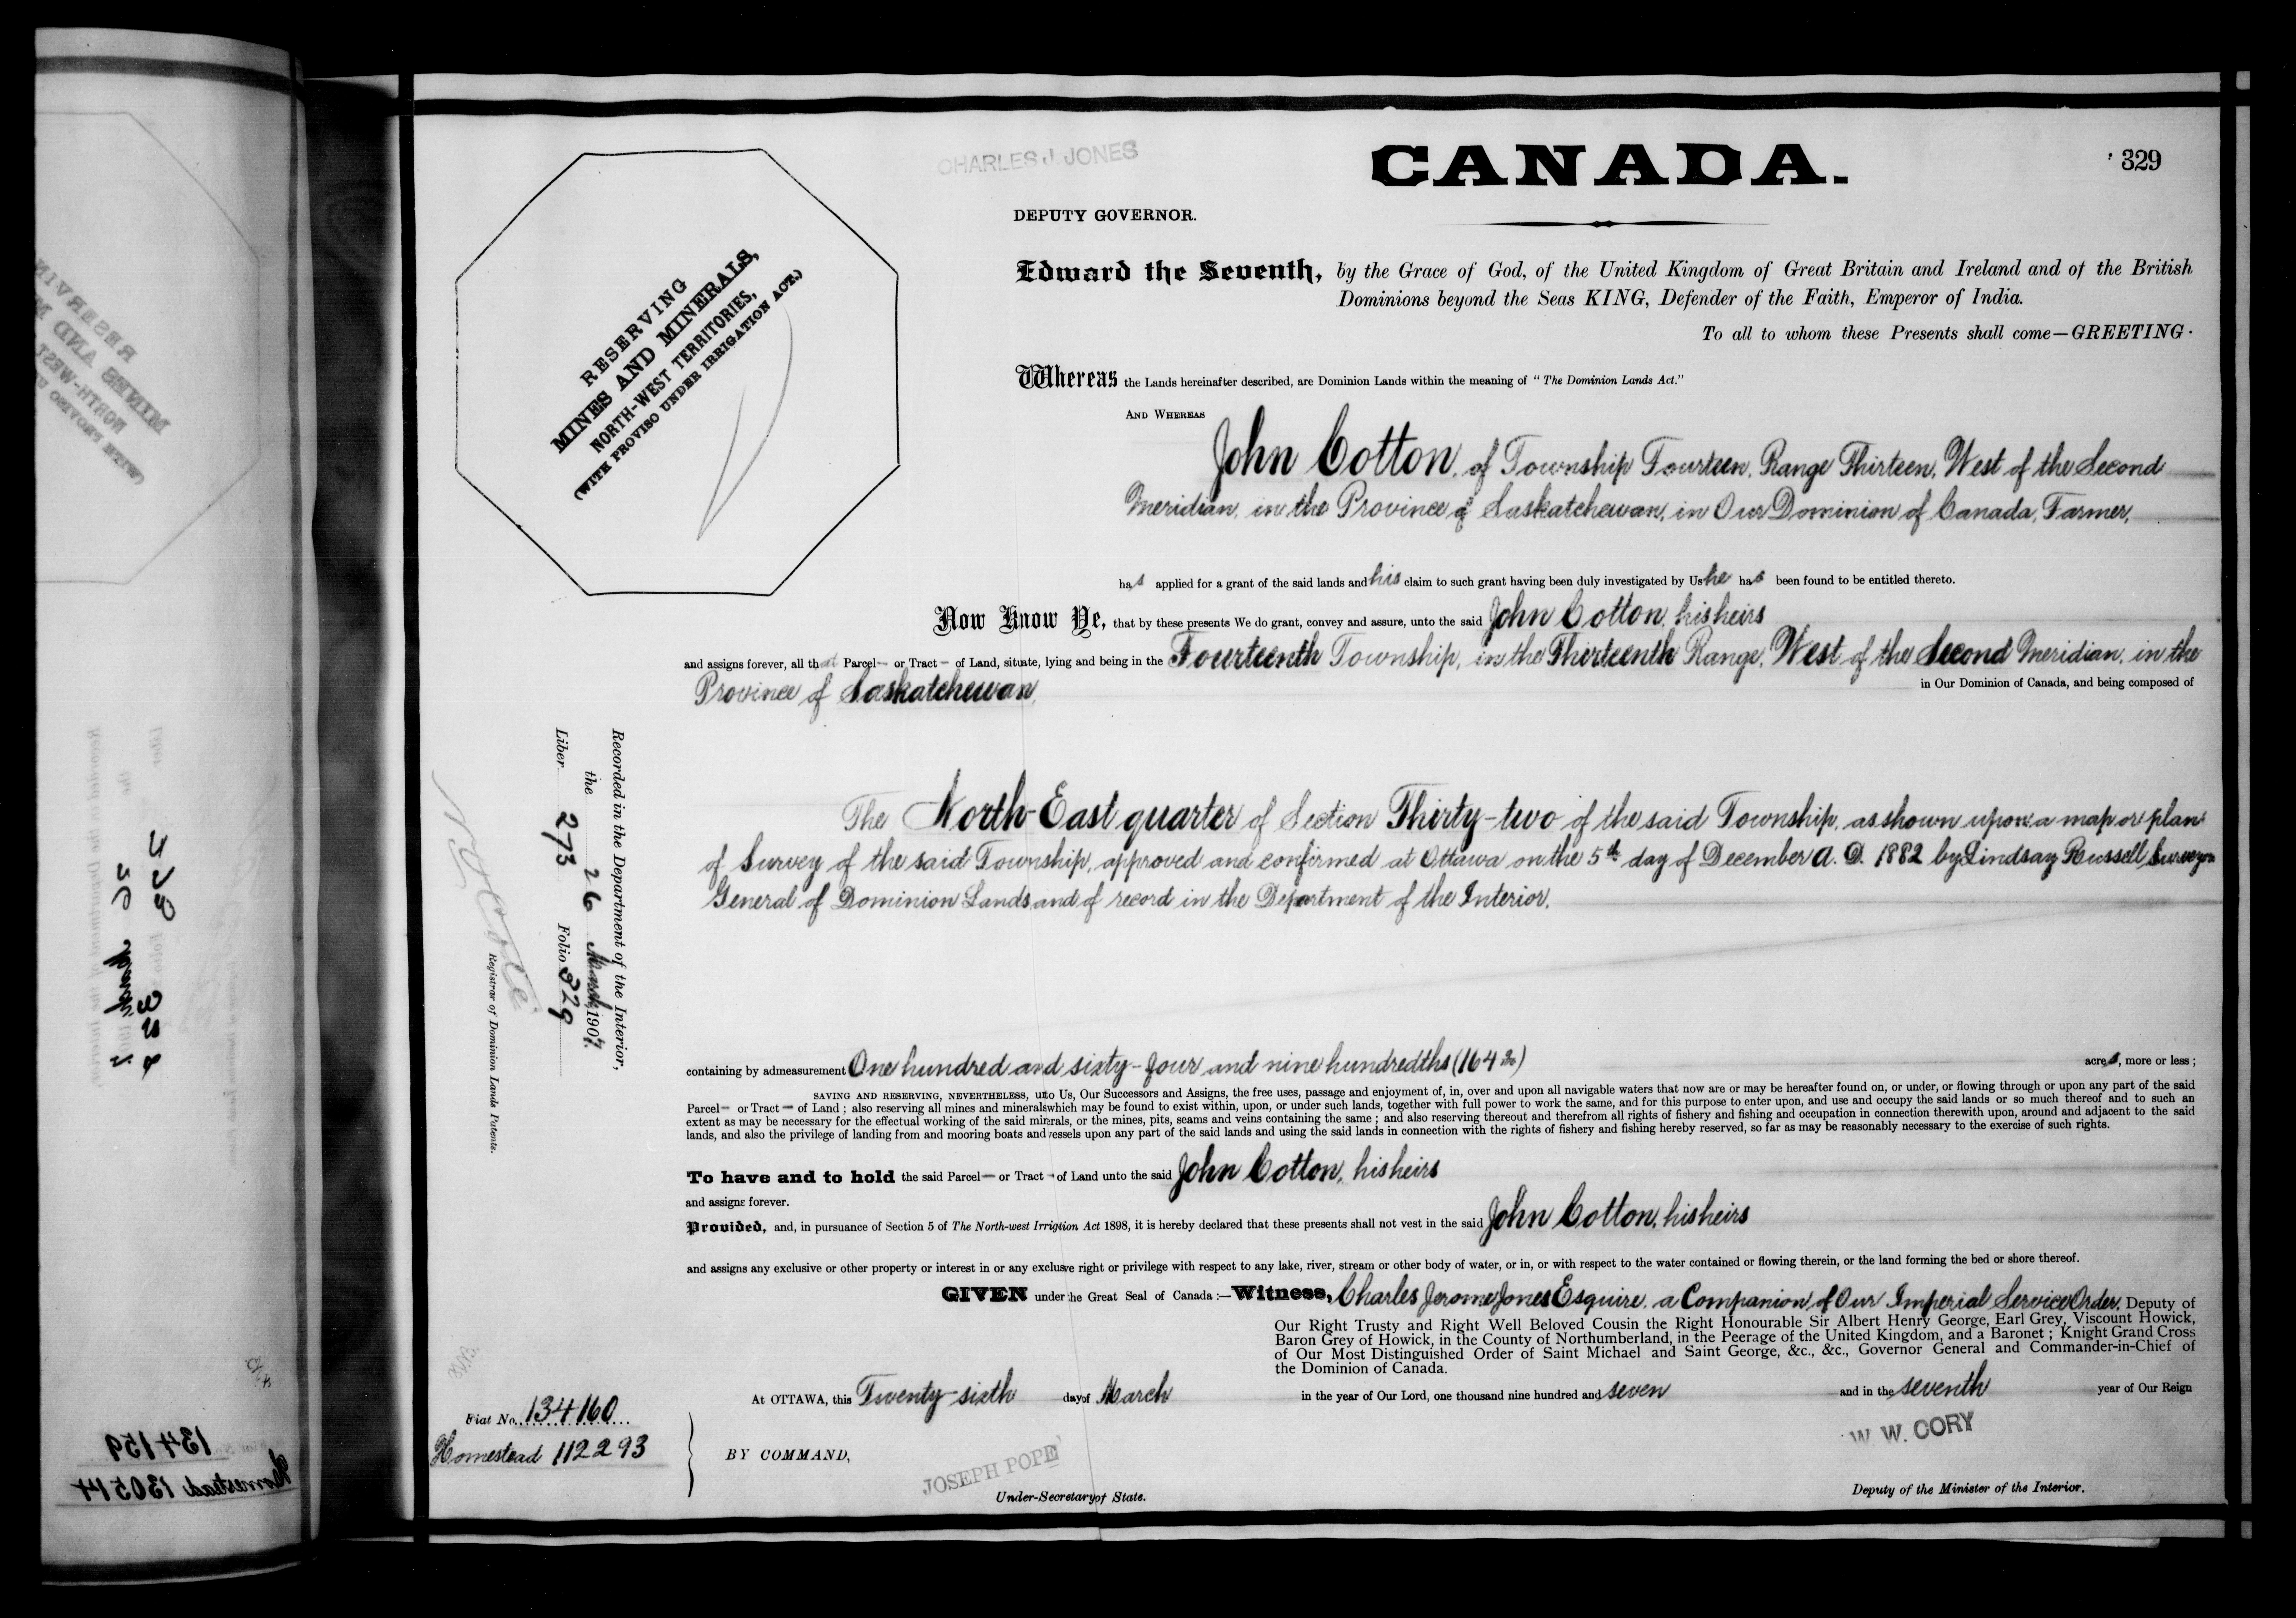 CHARLES J. JONES
CANADA.
329
DEPUTY GOVERNOR.
Edward the Seventh, by the Grace of God, of the United Kingdom of Great Britain and Ireland and of the British
Dominions beyond the Seas KING, Defender of the Faith, Emperor of India.
To all to whom these Presents shall come—GREETING.
RESERVING
MINES AND MINERALS,
NORTH-WEST TERRITORIES,
(WITH PROVISO UNDER IRRIGATION ACT.)
Whereas the Lands hereinafter described, are Dominion Lands within the meaning of "The Dominion Lands Act."
AND WHEREAS
John Cotton, of Township Fourteen, Range Thirteen, West of the Second
Meridian, in the Province of Saskatchewan, in Our Dominion of Canada, Farmer,
has applied for a grant of the said lands and his claim to such grant having been duly investigated by Us he has been found to be entitled thereto.
Now Know Ye, that by these presents We do grant, convey and assure, unto the said John Cotton, his heirs
and assigns forever, all that Parcel— or Tract— of Land, situate, lying and being in the Fourteenth Township, in the Thirteenth Range, West of the Second Meridian, in the
Province of Saskatchewan, in Our Dominion of Canada, and being composed of
The North-East quarter of Section Thirty-two of the said Township, as shown upon a map or plan
of Survey of the said Township, approved and confirmed at Ottawa on the 5th day of December A. D. 1882 by Lindsay Russell Surveyor
General of Dominion Lands and of record in the Department of the Interior.
Recorded in the Department of the Interior,
the 26 March, 1907.
Liber 273 Folio 329
Registrar of Dominion Lands Patents.
containing by admeasurement One hundred and sixty-four and nine hundredths (164 9/100) acres, more or less;
SAVING AND RESERVING, NEVERTHELESS, unto Us, Our Successors and Assigns, the free uses, passage and enjoyment of, in, over and upon all navigable waters that now are or may be hereafter found on, or under, or flowing through or upon any part of the said
Parcel— or Tract— of Land; also reserving all mines and minerals which may be found to exist within, upon, or under such lands, together with full power to work the same, and for this purpose to enter upon, and use and occupy the said lands or so much thereof and to such an
extent as may be necessary for the effectual working of the said minerals, or the mines, pits, seams and veins containing the same; and also reserving thereout and therefrom all rights of fishery and fishing and occupation in connection therewith upon, around and adjacent to the said
lands, and also the privilege of landing from and mooring boats and vessels upon any part of the said lands and using the said lands in connection with the rights of fishery and fishing hereby reserved, so far as may be reasonably necessary to the exercise of such rights.
To have and to hold the said Parcel— or Tract— of Land unto the said John Cotton, his heirs
and assigns forever.
Provided, and, in pursuance of Section 5 of The North-west Irrigtion Act 1898, it is hereby declared that these presents shall not vest in the said John Cotton, his heirs
and assigns any exclusive or other property or interest in or any exclusive right or privilege with respect to any lake, river, stream or other body of water, or in, or with respect to the water contained or flowing therein, or the land forming the bed or shore thereof.
GIVEN under the Great Seal of Canada:—Witness, Charles Jerome Jones Esquire, a Companion of Our Imperial Service Order, Deputy of
Our Right Trusty and Right Well Beloved Cousin the Right Honourable Sir Albert Henry George, Earl Grey, Viscount Howick,
Baron Grey of Howick, in the County of Northumberland, in the Peerage of the United Kingdom, and a Baronet; Knight Grand Cross
of Our Most Distinguished Order of Saint Michael and Saint George, &c., &c., Governor General and Commander-in-Chief of
the Dominion of Canada.
At OTTAWA, this Twenty-sixth day of March in the year of Our Lord, one thousand nine hundred and seven and in the seventh year of Our Reign
Fiat No. 134160
Homestead 112293
BY COMMAND,
JOSEPH POPE
Under-Secretary of State.
W. W. CORY
Deputy of the Minister of the Interior.
134159
Homestead 130514